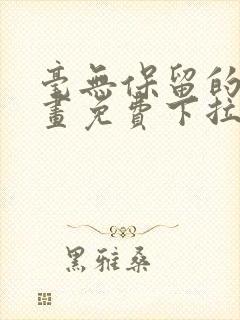 毫無保留的
畫免費下拉
黑雅桑